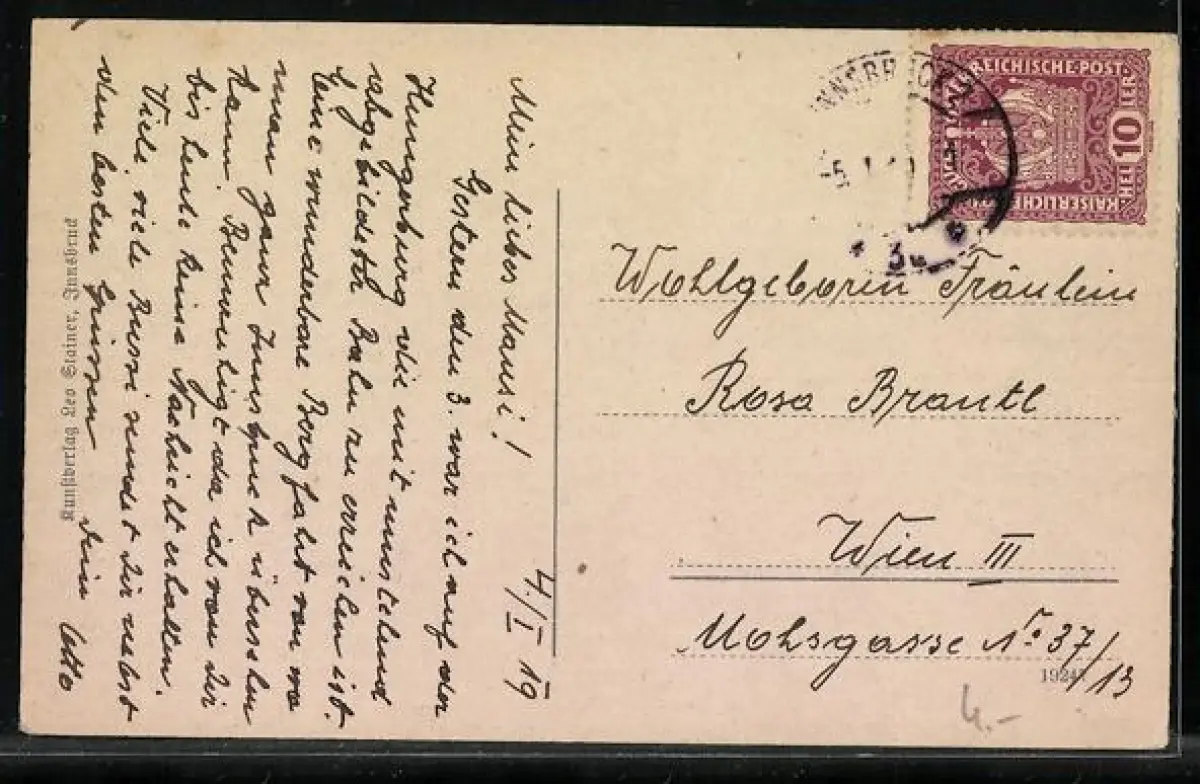 Mein liebes Mausi! 4./I 19
Gestern den 3. war ich auf der
Hungerburg die mit umstehend
abgebildeter Bahn zu erreichen ist.
Eine wunderbare Bergfahrt von wo
man ganz Innsbruck übersehen
kann. Beunruhigt da ich von Dir
bis heute keine Nachricht erhalten.
Viele, viele Bussi sendet Dir nebst
den besten Grüssen Dein Otto
Kunstverlag Leo Stainer, Innsbruck
INNSBRUCK
5. I. 19
3
REICHISCHE·POST
KAISERLICHE
10
HELLER
Wohlgeboren Fräulein
Rosa Brantl
Wien III
Mohsgasse Nr. 37/13
1924
4.-